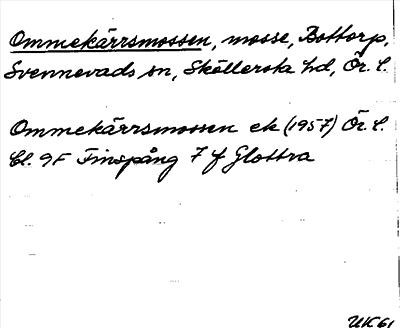 Ommekärrsmossen, mosse, Bottorp,
Svennevads sn, Sköllersta hd, Ör. l.
Ommekärrsmossen ek (1957) Ör. l.
Bl. 9F Finspång 7 f Glottra
UK 61